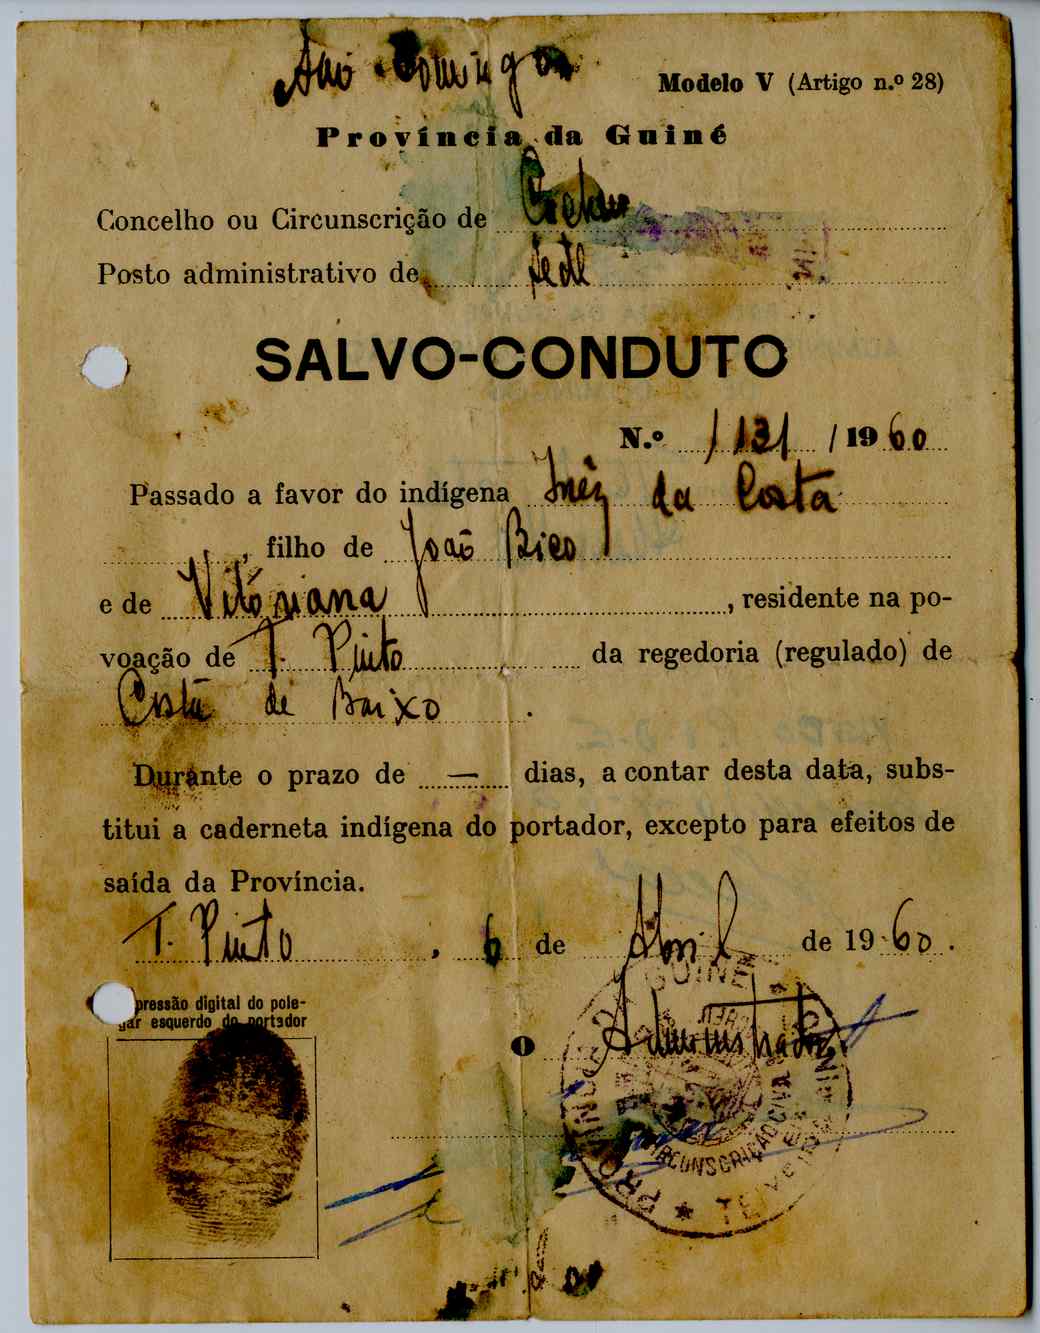 São Domingos
Modelo V (Artigo n.º 28)
Província da Guiné
Concelho ou Circunscrição de Cacheu
Posto administrativo de Sede
SALVO-CONDUTO
N.º 1131 / 1960
Passado a favor do indígena Inêz da Costa
, filho de João Bico
e de Vitóriana , residente na po-
voação de T. Pinto da regedoria (regulado) de
Costa de Baixo .
Durante o prazo de — dias, a contar desta data, subs-
titui a caderneta indígena do portador, excepto para efeitos de
saída da Província.
T. Pinto , 6 de Abril de 1960.
pressão digital do pole-
gar esquerdo do portador
O Administrador,
PROVINCIA DA GUINÉ
CIRCUNSCRIÇÃO CIVIL
TEIXEIRA PINTO